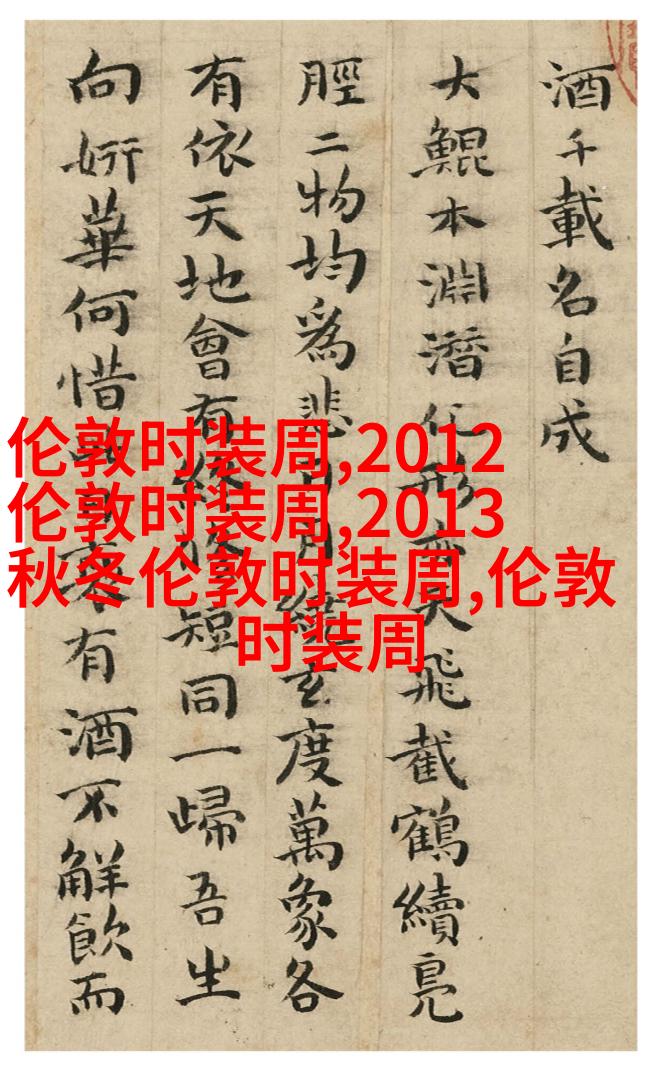 酒千載名自成
大鯤本淵潛化形亦天飛截鶴續鳧
脛二物均爲悲日月玄度萬象各
有依天地會有終脩短同一歸吾生
向妍華何惜寒有酒不解飲而
伦敦时装周,2012
伦敦时装周,2013
秋冬伦敦时装周,伦敦
时装周